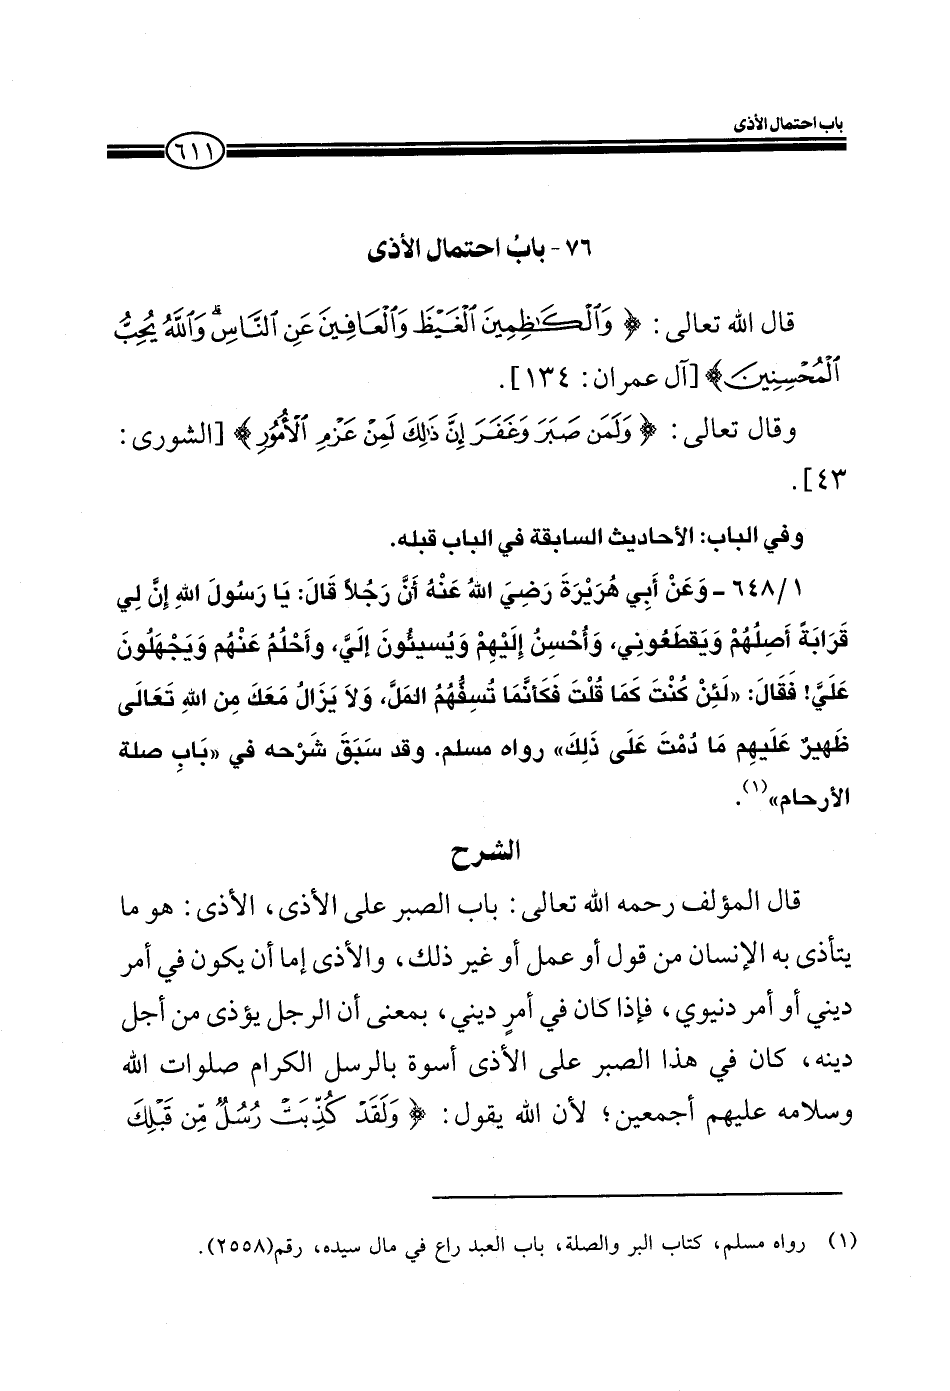 باب احتمال الأذى
٦١١
٧٦- بابُ احتمال الأذى
قال الله تعالى: ﴿ وَٱلْكَٰظِمِينَ ٱلْغَيْظَ وَٱلْعَافِينَ عَنِ ٱلنَّاسِۗ وَٱللَّهُ يُحِبُّ
ٱلْمُحْسِنِينَ﴾ [آل عمران: ١٣٤].
وقال تعالى: ﴿ وَلَمَن صَبَرَ وَغَفَرَ إِنَّ ذَٰلِكَ لَمِنْ عَزْمِ ٱلْأُمُورِ ﴾ [الشورى:
٤٣].
وفي الباب: الأحاديث السابقة في الباب قبله.
٦٤٨/١ - وَعَنْ أَبِي هُرَيْرَةَ رَضِيَ اللهُ عَنْهُ أَنَّ رَجُلاً قَالَ: يَا رَسُولَ اللهِ إِنَّ لِي
قَرَابَةً أَصِلُهُمْ وَيَقطَعُونِي، وَأُحْسِنُ إِلَيْهِمْ وَيُسيئُونَ إِلَيَّ، وأَحْلُمُ عَنْهُم وَيَجْهَلُونَ
عَلَيَّ! فَقَالَ: «لَئِنْ كُنْتَ كَمَا قُلْتَ فَكَأَنَّمَا تُسِفُّهُمُ المَلَّ، وَلاَ يَزَالُ مَعَكَ مِن اللهِ تَعَالَى
ظَهِيرٌ عَلَيهِم مَا دُمْتَ عَلَى ذَلِكَ» رواه مسلم. وقد سَبَقَ شَرْحه في «بَابِ صلة
الأرحام»(١).
الشرح
قال المؤلف رحمه الله تعالى: باب الصبر على الأذى، الأذى: هو ما
يتأذى به الإنسان من قول أو عمل أو غير ذلك، والأذى إما أن يكون في أمر
ديني أو أمر دنيوي، فإذا كان في أمرٍ ديني، بمعنى أن الرجل يؤذى من أجل
دينه، كان في هذا الصبر على الأذى أسوة بالرسل الكرام صلوات الله
وسلامه عليهم أجمعين؛ لأن الله يقول: ﴿ وَلَقَدْ كُذِّبَتْ رُسُلٌ مِّن قَبْلِكَ
(١) رواه مسلم، كتاب البر والصلة، باب العبد راع في مال سيده، رقم(٢٥٥٨).